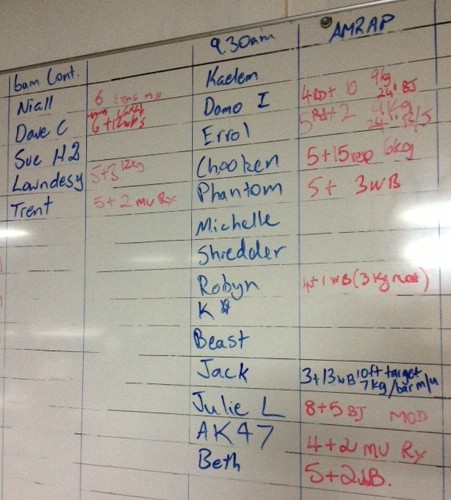 6am Cont.
Niall 6
Dave C 6+12wb's
Sue H2
Lowndesy 5+3 12kg
Trent 5+2 MU Rx
9.30am AMRAP
Kaelem
Domo I 4RD+10 9kg 24" BJ
Errol 5RD+2 9kg 24"
Chooken 5+15rep 6kg
Phantom 5+ 3WB
Michelle
Shredder
Robyn 4+1 WB (3kg
K*
Beast
Jack 3+13WB 10ft target 7kg/bar m/u
Julie L 8+5BJ MOD
AK47 4+2 MU Rx
Beth 5+2WB.